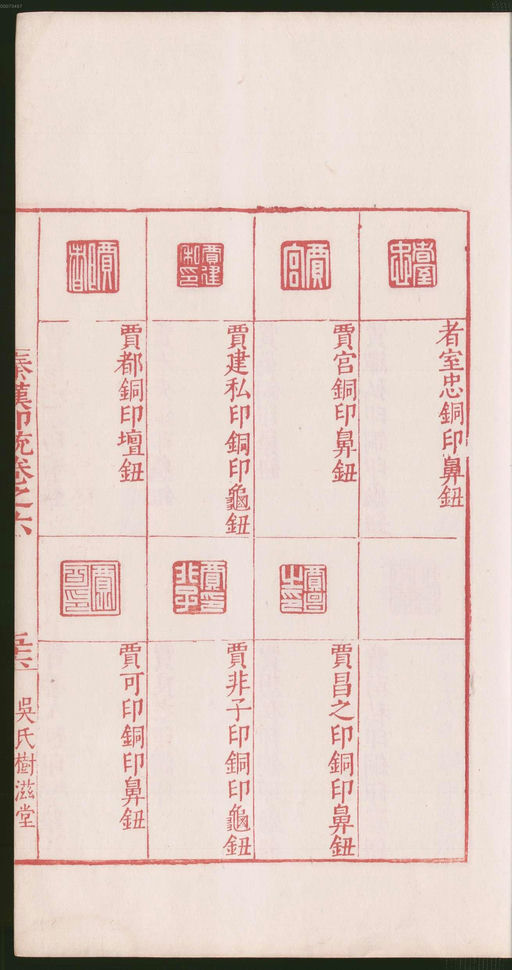 者室忠銅印鼻鈕
賈官銅印鼻鈕
賈昌之印銅印鼻鈕
賈建私印銅印龜鈕
賈非子印銅印龜鈕
賈都銅印壇鈕
賈可印銅印鼻鈕
秦漢印統卷之六
吳氏樹滋堂